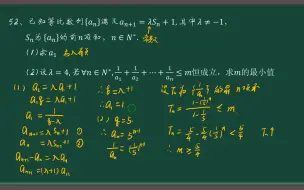 52、已知等比数列{aₙ}满足aₙ₊₁=λSₙ+1,其中λ≠-1,
Sₙ为{aₙ}的前n项和, n∈N*.
(1)求a₁
(2)设λ=4,若∀n∈N*, 1/a₁+1/a₂+⋯+1/aₙ≤m恒成立,求m的最小值
(1) a₂=λa₁+1
a₁q=λa₁+1
a₁=1/(q-λ)
aₙ₊₁=λSₙ+1 ①
aₙ=λSₙ₋₁+1 ②
aₙ₊₁-aₙ=λaₙ
aₙ₊₁=(λ+1)aₙ
∴q=λ+1
∴a₁=1
(2) q=5
aₙ=5ⁿ⁻¹
1/aₙ=(1/5)ⁿ⁻¹
设Tₙ为{1/aₙ}的前n项和
Tₙ=(1-(1/5)ⁿ)/(1-1/5)≤m
Tₙ=5/4-5/4(1/5)ⁿ<5/4 Tₙ↑
∴m≥5/4